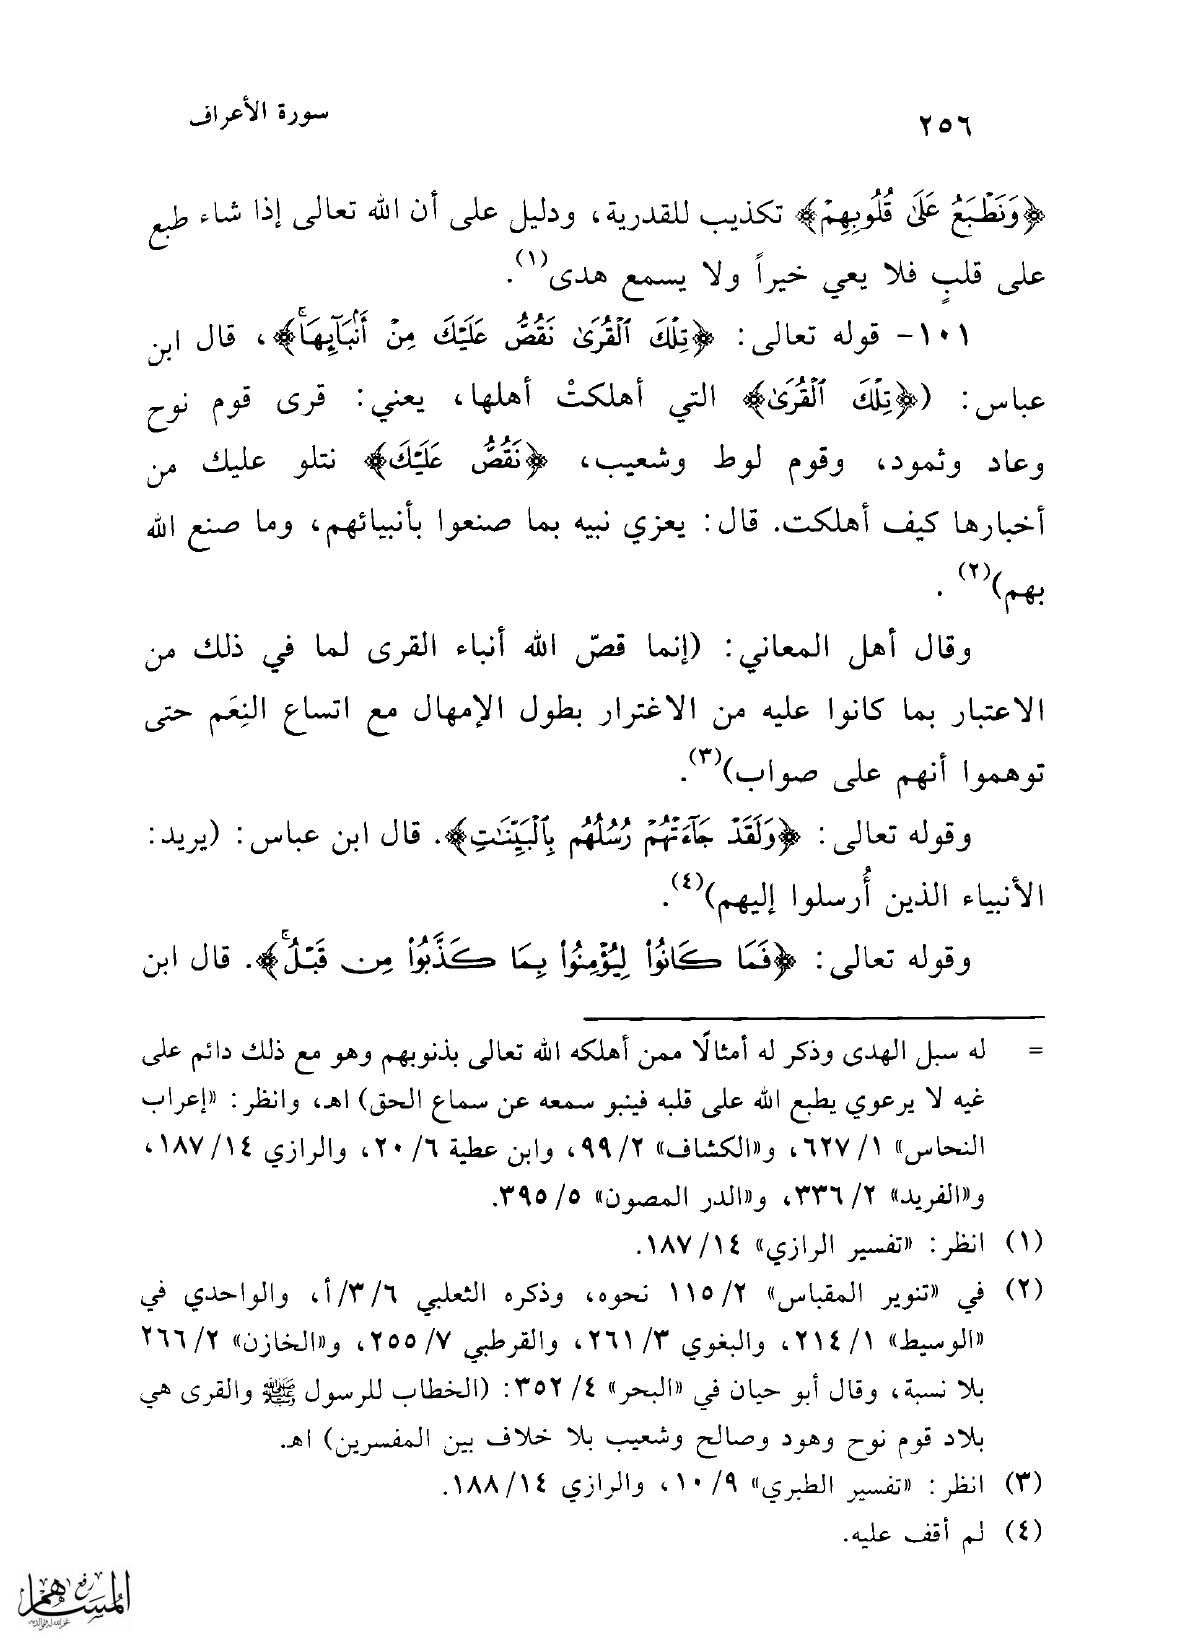 ٢٥٦ سورة الأعراف
﴿وَنَطْبَعُ عَلَىٰ قُلُوبِهِمْ﴾ تكذيب للقدرية، ودليل على أن الله تعالى إذا شاء طبع
على قلبٍ فلا يعي خيراً ولا يسمع هدى(١).
١٠١- قوله تعالى: ﴿تِلْكَ ٱلْقُرَىٰ نَقُصُّ عَلَيْكَ مِنْ أَنۢبَآئِهَاۚ﴾، قال ابن
عباس: (﴿تِلْكَ ٱلْقُرَىٰ﴾ التي أهلكتْ أهلها، يعني: قرى قوم نوح
وعاد وثمود، وقوم لوط وشعيب، ﴿نَقُصُّ عَلَيْكَ﴾ نتلو عليك من
أخبارها كيف أهلكت. قال: يعزي نبيه بما صنعوا بأنبيائهم، وما صنع الله
بهم)(٢).
وقال أهل المعاني: (إنما قصّ الله أنباء القرى لما في ذلك من
الاعتبار بما كانوا عليه من الاغترار بطول الإمهال مع اتساع النِعَم حتى
توهموا أنهم على صواب)(٣).
وقوله تعالى: ﴿وَلَقَدْ جَآءَتْهُمْ رُسُلُهُم بِٱلْبَيِّنَٰتِ﴾. قال ابن عباس: (يريد:
الأنبياء الذين أُرسلوا إليهم)(٤).
وقوله تعالى: ﴿فَمَا كَانُوا۟ لِيُؤْمِنُوا۟ بِمَا كَذَّبُوا۟ مِن قَبْلُۚ﴾. قال ابن
= له سبل الهدى وذكر له أمثالًا ممن أهلكه الله تعالى بذنوبهم وهو مع ذلك دائم على
غيه لا يرعوي يطبع الله على قلبه فينبو سمعه عن سماع الحق) اهـ، وانظر: «إعراب
النحاس» ١/ ٦٢٧، و«الكشاف» ٢/ ٩٩، وابن عطية ٦/ ٢٠، والرازي ١٤/ ١٨٧،
و«الفريد» ٢/ ٣٣٦، و«الدر المصون» ٥/ ٣٩٥.
(١) انظر: «تفسير الرازي» ١٤/ ١٨٧.
(٢) في «تنوير المقباس» ٢/ ١١٥ نحوه، وذكره الثعلبي ٦/ ٣/ أ، والواحدي في
«الوسيط» ١/ ٢١٤، والبغوي ٣/ ٢٦١، والقرطبي ٧/ ٢٥٥، و«الخازن» ٢/ ٢٦٦
بلا نسبة، وقال أبو حيان في «البحر» ٤/ ٣٥٢: (الخطاب للرسول ﷺ والقرى هي
بلاد قوم نوح وهود وصالح وشعيب بلا خلاف بين المفسرين) اهـ.
(٣) انظر: «تفسير الطبري» ٩/ ١٠، والرازي ١٤/ ١٨٨.
(٤) لم أقف عليه.